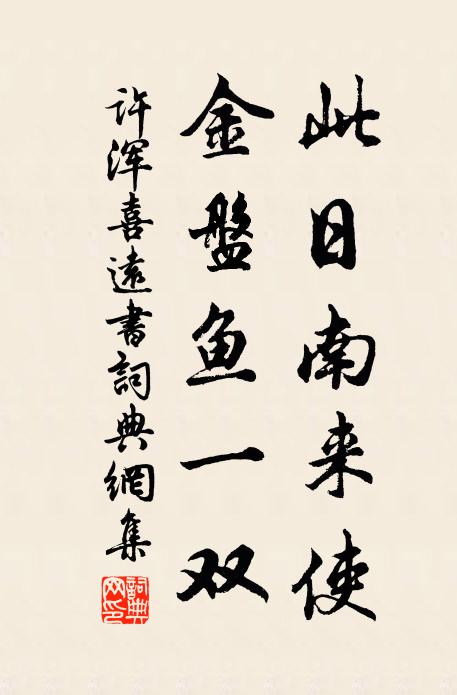 此日南来使
金盤鱼一双
许浑喜遠書詞典網集
詞典
网印